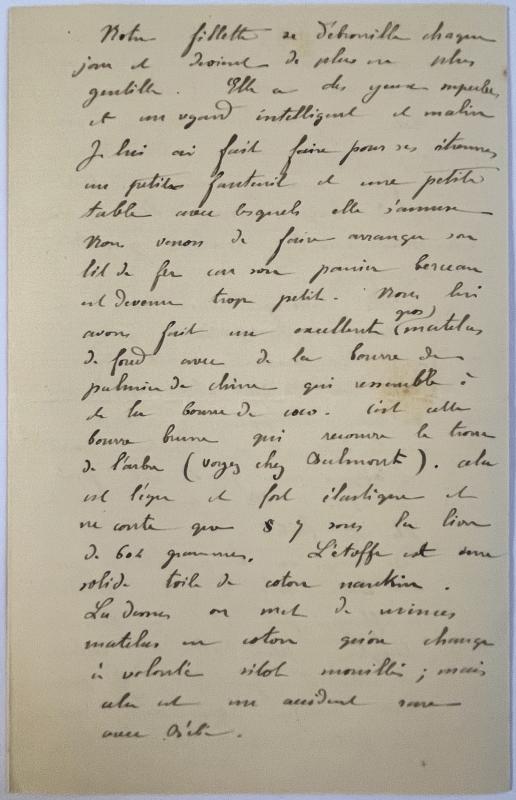 Notre fillette se débrouille chaque
jour et devient de plus en plus
gentille. Elle a des yeux superbes
et un regard intelligent et malin
Je lui ai fait faire pour ses étrennes
un petit fauteuil et une petite
table avec lesquels elle s'amuse
Nous venons de faire arranger son
lit de fer car son panier berceau
est devenu trop petit. Nous lui
avons fait un excellent (gros) matelas
de fond avec de la bourre de
palmier de chine qui ressemble à
de la bourre de coco. C'est cette
bourre brune qui recouvre le tronc
de l'arbre (voyez chez Dulmont). cela
est léger et fort élastique et
ne coute que 8 ou 9 sous la livre
de 604 grammes. L'étoffe est une
solide toile de coton nankin.
La dessus on met de minces
matelas en coton qu'on change
à volonté sitôt mouillés ; mais
cela est un accident rare
avec Bébé.